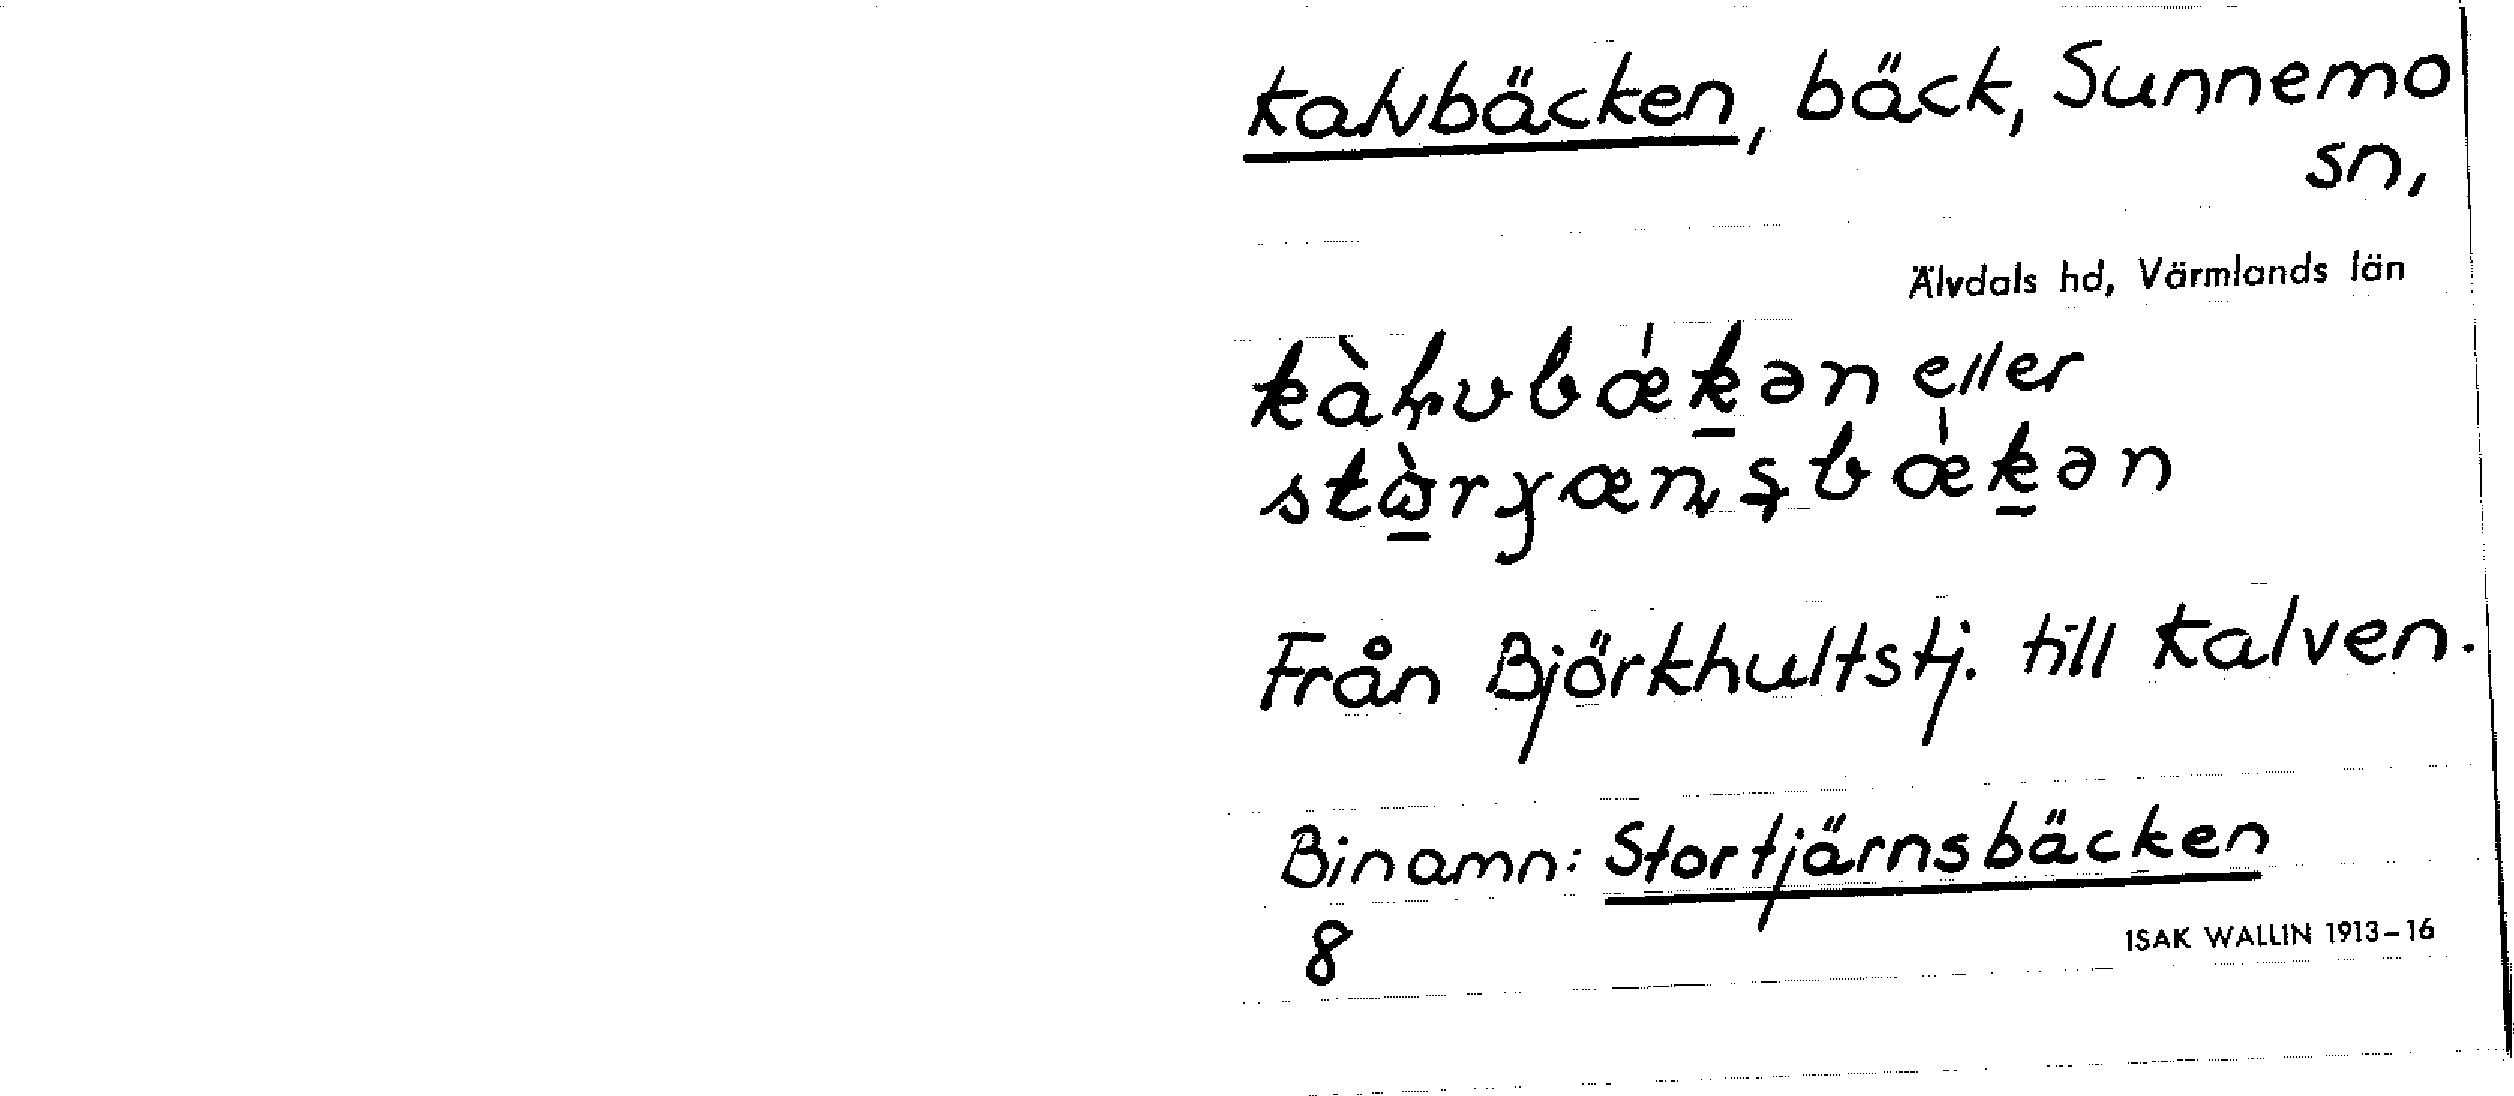 Kalvbäcken, bäck, Sunnemo
sn,
Älvdals hd, Värmlands län
eller
Från Björkhultstj. till Kalven.
Binamn: Stortjärnsbäcken
8
ISAK WALLIN 1913-16